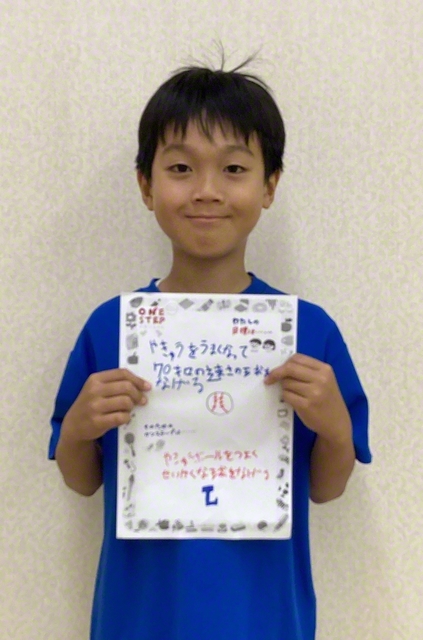 ONE
STEP
わたしの
目標は……
やきゅうをうまくなって
70キロの速さのまおも
なげる
そのための
ワンステップは……
やきゅうボールをつよく
せいかくなるおをなげる
L